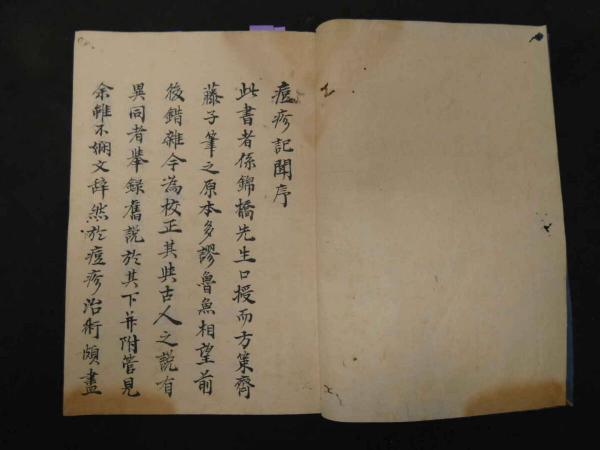 痘疹記聞序
此書者係錦橋先生口授而方策齊
藤子筆之原本多謬魯魚相望前
後錯雜今為校正其與古人之說有
異同者舉錄舊說於其下并附管見
余雖不嫻文辞然於痘疹治術頗盡